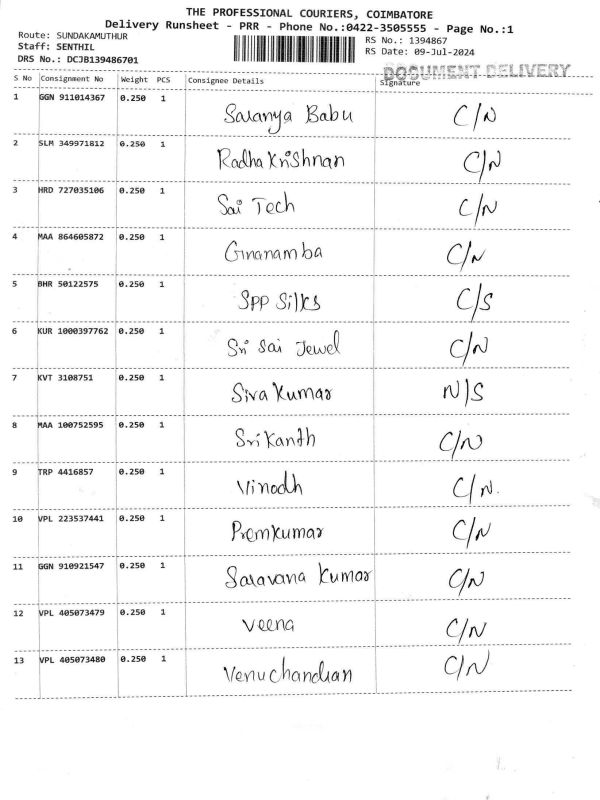 THE PROFESSIONAL COURIERS, COIMBATORE
Delivery Runsheet - PRR - Phone No.:0422-3505555 - Page No.:1
Route: SUNDAKAMUTHUR
RS No.: 1394867
Staff: SENTHIL
RS Date: 09-Jul-2024
DRS No.: DCJB139486701
DOCUMENT DELIVERY
S No Consignment No Weight PCS Consignee Details Signature
1 GGN 911014367 0.250 1 Saranya Babu C/N
2 SLM 349971812 0.250 1 Radha Krishnan C/N
3 HRD 727035106 0.250 1 Sai Tech C/N
4 MAA 864605872 0.250 1 Gnanamba C/N
5 BHR 50122575 0.250 1 SPP Silks C/S
6 KUR 1000397762 0.250 1 Sri Sai Jewel C/N
7 KVT 3108751 0.250 1 Siva Kumar N/S
8 MAA 100752595 0.250 1 Srikanth C/N
9 TRP 4416857 0.250 1 Vinodh C/N.
10 VPL 223537441 0.250 1 Premkumar C/N
11 GGN 910921547 0.250 1 Saravana Kumar C/N
12 VPL 405073479 0.250 1 Veena C/N
13 VPL 405073480 0.250 1 Venuchandran C/N